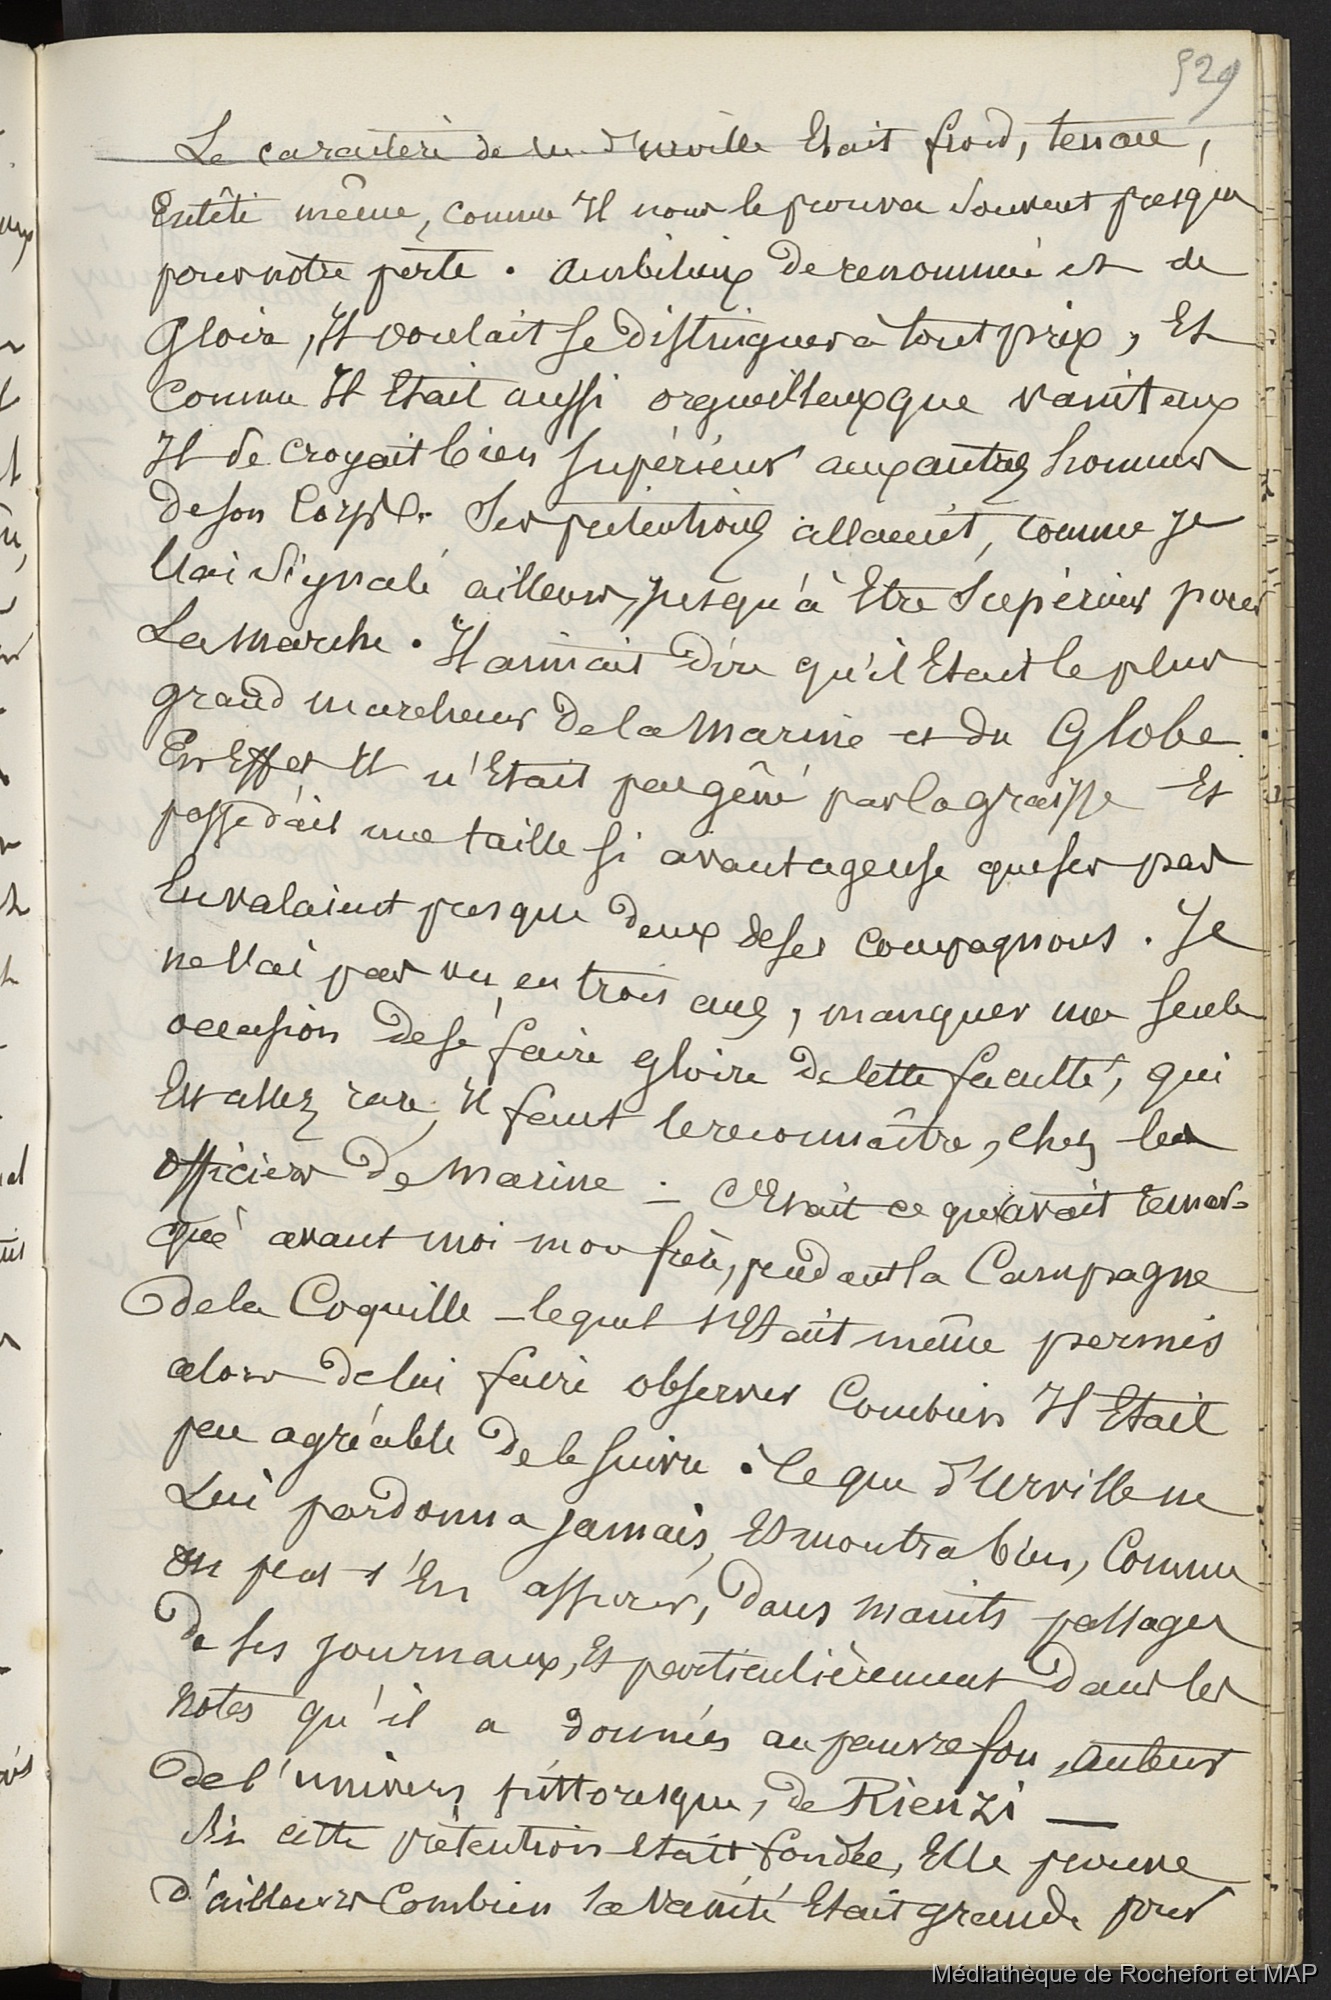 529
Le caractère de M. d'Urville Etait froid, tenace,
Entêté même, comme Il nous le prouva souvent presque
pour notre perte. Ambitieux de renommée et de
Gloire, Il voulait se distinguer à tout prix, Et
comme Il Etait aussi orgueilleux que vaniteux
Il se croyait bien supérieur aux autres hommes
de son Corps. Ses prétentions allaient, comme je
l'ai signalé ailleurs, jusqu'à Etre Supérieur pour
La Marche. Il aimait dire qu'il Etait le plus
grand marcheur de la Marine et du Globe
En Effet Il n'Etait pas gêné par la graisse Et
possédait une taille si avantageuse que ses pas
En valaient presque deux de ses compagnons. Je
ne l'ai pas vu, en trois ans, manquer une seule
occasion de se faire gloire de cette faculté, qui
Est assez rare, Il faut le reconnaître, chez les
officiers de Marine - C'Etait ce qu'avait remar-
qué avant moi mon frère, pendant la Campagne
de la Coquille - lequel s'Etait même permis
alors de lui faire observer Combien Il Etait
peu agréable de le suivre. Ce que d'Urville ne
Lui pardonna jamais, Et montra bien, Comme
on peut s'En assurer, dans maints passages
de ses journaux, Et particulièrement dans les
notes qu'il a données au pauvre fou, auteur
de l'univers pittoresque, de Rienzi —
Si cette prétention Etait fondée, Elle prouve
d'ailleurs Combien sa vanité Etait grande pour
Médiathèque de Rochefort et MAP